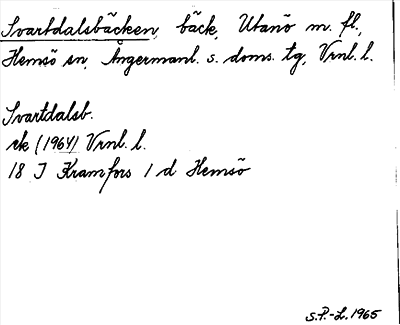 Svartdalsbäcken, bäck, Utanö m. fl.,
Hemsö sn, Ångermanl. s. doms. tg, Vrnl. l.
Svartdalsb.
rk (1964) Vrnl. l.
18 J Kramfors 1 d Hemsö
S.P.-L. 1965